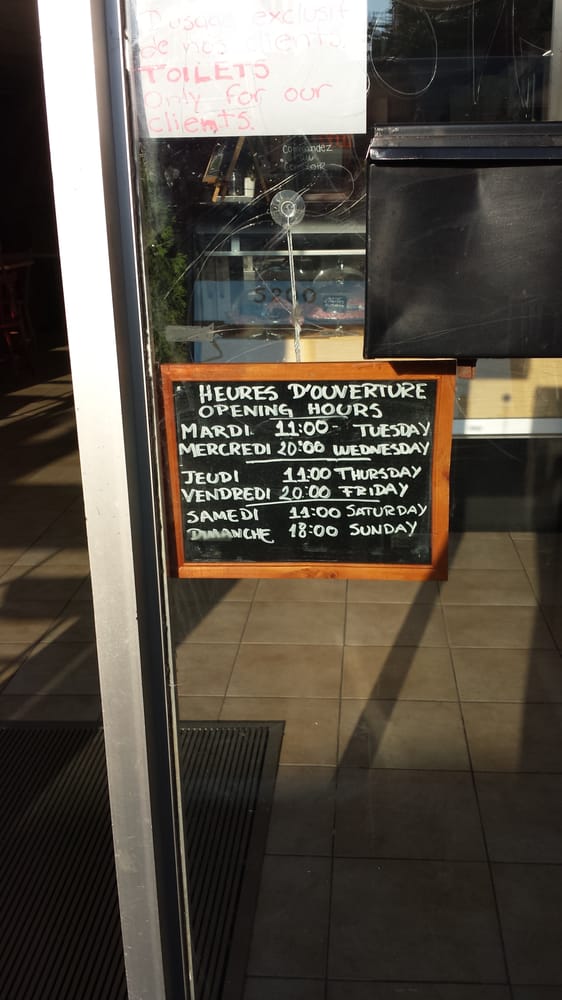 l'usage exclusif
de nos clients.
TOILETS
only for our
clients.
Commandez
au
comptoir
5900
HEURES D'OUVERTURE
OPENING HOURS
MARDI 11:00- TUESDAY
MERCREDI 20:00 WEDNESDAY
JEUDI 11:00 THURSDAY
VENDREDI 20:00 FRIDAY
SAMEDI 11:00 SATURDAY
DIMANCHE 18:00 SUNDAY